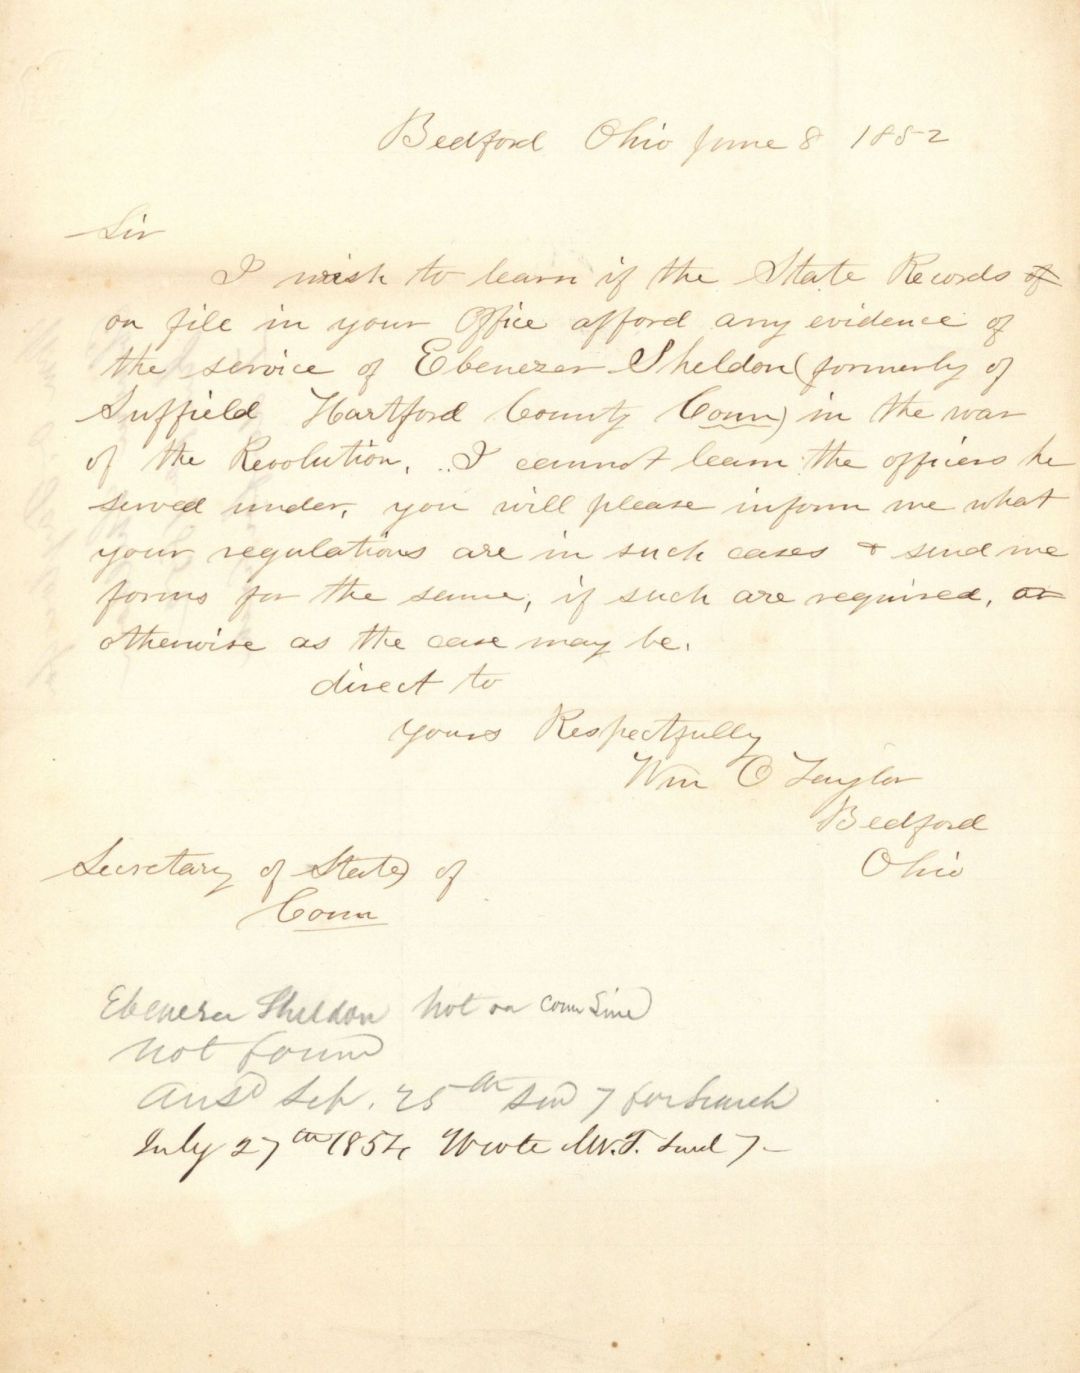 Bedford Ohio June 8 1852
Sir
I wish to learn if the State Records of
on file in your Office afford any evidence of
the service of Ebenezer Sheldon (formerly of
Suffield Hartford County Conn) in the war
of the Revolution, .. I cannot learn the officers he
served under, you will please inform me what
your regulations are in such cases & send me
forms for the same, if such are required, or
otherwise as the case may be.
direct to
Yours Respectfully
Wm C Taylor
Bedford
Ohio
Secretary of State of
Conn
Ebenezer Sheldon Not on Conn Line
Not found
Ansd Sep. 25th Send 7 for Search
July 27th 1854 Wrote Mr. T. Send 7-